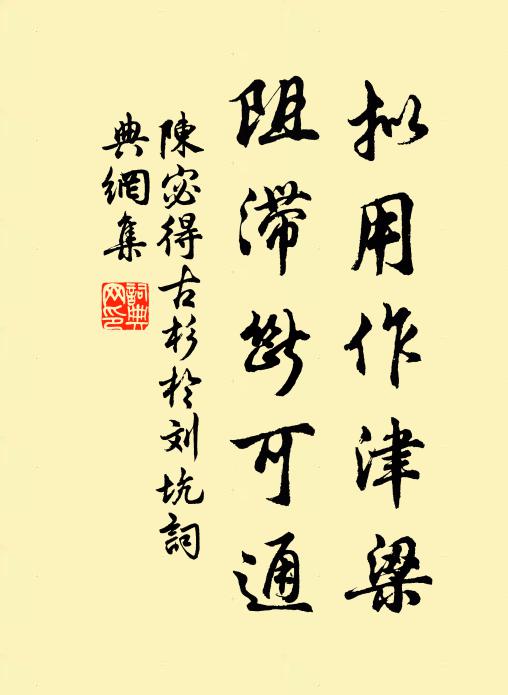 拟用作津梁
阻滞斷可通
陳宓得古杉於刘坑詞
典網集
詞典网印